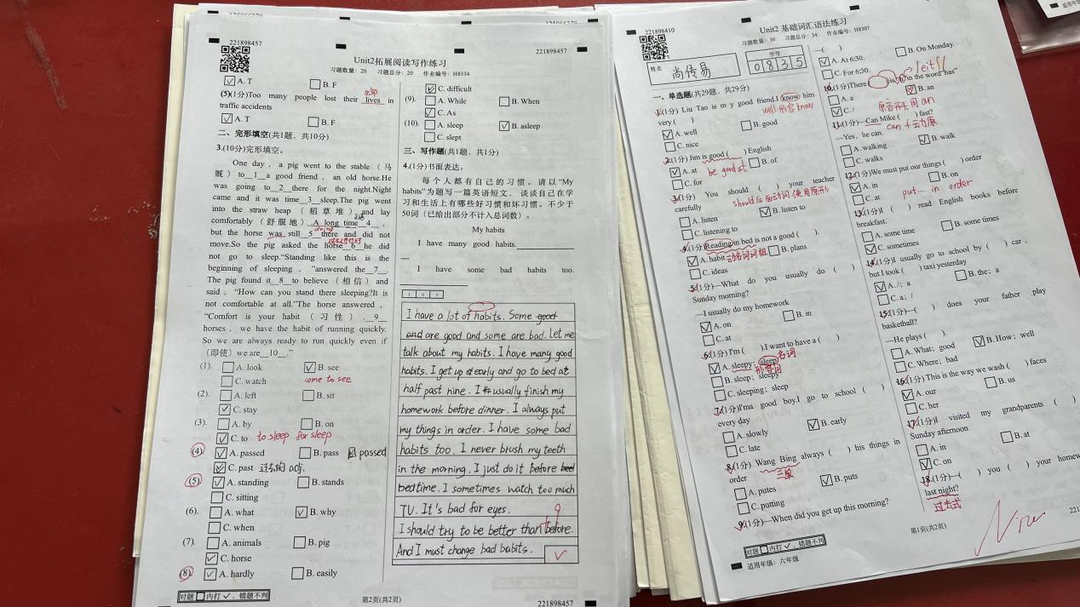 221898457
221898457
Unit2拓展阅读写作练习
习题数量: 20 习题总分: 20 作业编号: H8334
A. T
B. F
(5)(1分)Too many people lost their lives in
traffic accidents
A. T
B. F
二、完形填空(共1题．共10分)
3.(10分)完形填空。
One day , a pig went to the stable ( 马
厩 ) to__1__a good friend , an old horse.He
was going to__2__there for the night.Night
came and it was time__3__sleep.The pig went
into the straw heap ( 稻草堆 ) and lay
comfortably ( 舒服地 ) .A long time__4__,
but the horse was still__5__there and did not
move.So the pig asked the horse__6__he did
not go to sleep."Standing like this is the
beginning of sleeping , "answered the__7__.
The pig found it__8__to believe ( 相信 ) and
said , "How can you stand there sleeping?It is
not comfortable at all."The horse answered ,
"Comfort is your habit ( 习性 ) . __9__
horses , we have the habit of running quickly.
So we are always ready to run quickly even if
(即使) we are__10__."
(1)
A. look
B. see
C. watch
come to see
(2).
A. left
B. sit
C. stay
(3).
A. by
B. on
C. to
to sleep for sleep
(4)
A. passed
B. pass
passed
C. past
adj.
(5)
A. standing
B. stands
C. sitting
(6).
A. what
B. why
C. when
(7).
A. animals
B. pig
C. horse
(8)
A. hardly
B. easily
对题 内打✓，错题不判
第2页(共2页)
221898457
C. difficult
(9).
A. While
B. When
C. As
(10).
A. sleep
B. asleep
C. slept
三、写作题(共1题．共1分)
4.(1分)书面表达。
每个人都有自己的习惯。请以"My
habits"为题写一篇英语短文，谈谈自己在学
习和生活上有哪些好习惯和坏习惯。不少于
50词（已给出部分不计入总词数）。
My habits
I have many good habits.
I have some bad habits too.
I have a lot of habits. Some good
and are good and some are bad. Let me
talk about my habits. I have many good
habits. I get up early and go to bed at
half past nine. I usually finish my
homework before dinner. I always put
my things in order. I have some bad
habits too. I never brush my teeth
in the morning. I just do it before bed
bedtime. I sometimes watch too much
TV. It's bad for eyes.
I should try to be better than before.
And I must change bad habits.
221898410
Unit2 基础词汇语法练习
习题总分: 34 作业编号: H8307
姓名
尚传易
学号
0 8 3 5
一、单选题(共29题，共29分)
1.(1分) Liu Tao is m y good friend.I know him
very ( )
A. well
B. good
C. nice
2.(1分) Jim is good ( ) English
A. at
B. of
C. for
be good at
3.(1分) You should ( ) your teacher
carefully
A. listen
B. listen to
C. listening to
4.(1分)Reading in bed is not a good ( ).
A. habit
B. plans
C. ideas
5.(1分)—What do you usually do ( )
Sunday morning?
—I usually do my homework
A. on
B. in
C. at
6.(1分)I'm ( ).I want to have a ( )
A. sleepy; sleep
名词
B. sleep; sleepy
形容词
C. sleeping; sleep
7.(1分)I'ma good boy.I go to school ( )
every day
A. slowly
B. early
C. late
8.(1分) Wang Bing always ( ) his things in
order
A. putes
B. puts
C. putting
9.(1分)—When did you get up this morning?
对题 内打✓，错题不判
适用年级：六年级
—( )
A. At 6:30.
B. On Monday.
C. For 6:30.
A. a
B. an
C. /
11.(1分)—Can Mike ( ) fast?
—Yes , he can.
A. walking
B. walk
C. walks
12.(1分)We must put our things ( ) order
A. in
B. on
C. at
put... in order
13.(1分)I ( ) read English books before
breakfast.
A. some time
B. some times
C. sometimes
14.(1分)I usually go to school by ( ) car ,
but I took ( ) taxi yesterday
A. /; a
B. the; a
C. a; /
15.(1分)—( ) does your father play
basketball?
—He plays ( ).
A. What; good
B. How; well
C. Where; bad
16.(1分) This is the way we wash ( ) faces
A. our
B. us
C. her
17.(1分)I visited my grandparents ( )
Sunday afternoon
A. in
B. at
C. on
18.(1分)—( ) you ( ) your
last night?
过去式
第1页(共2页)